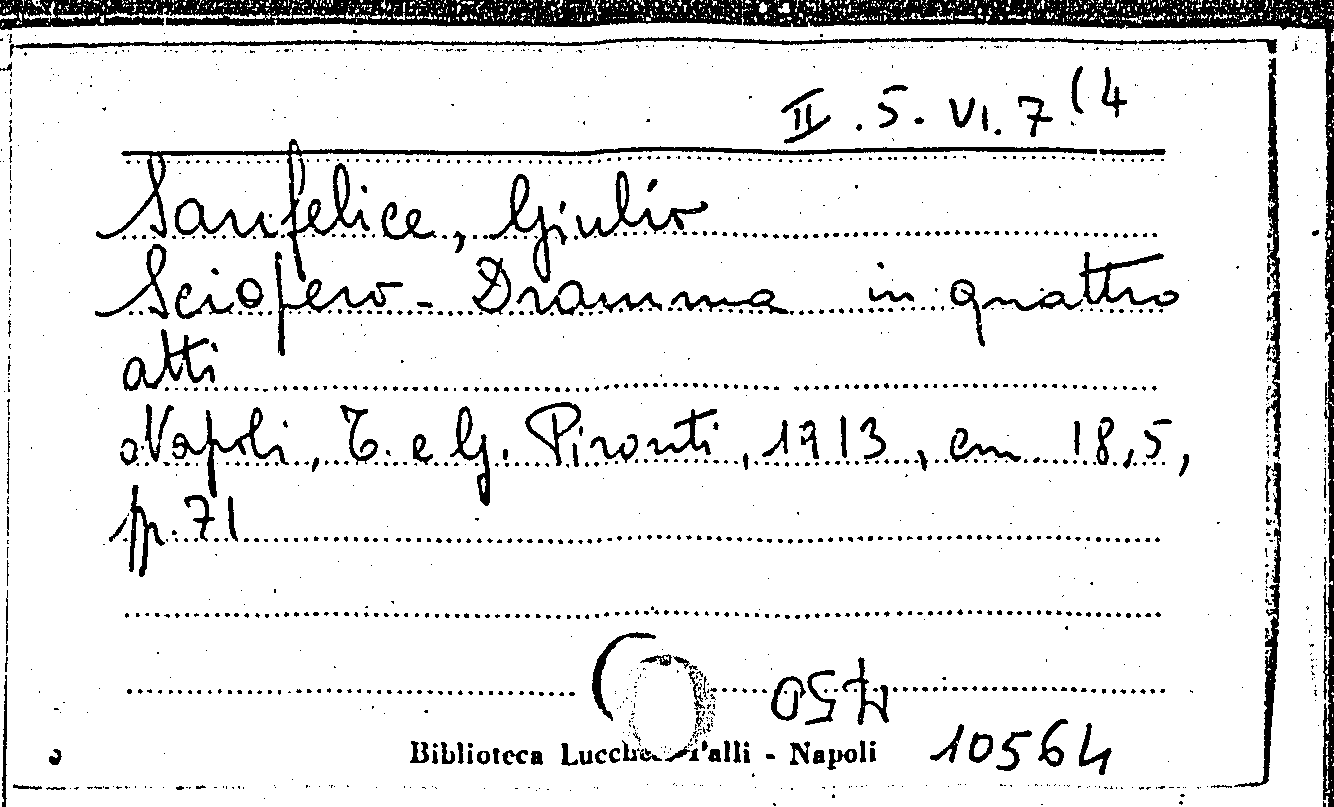 II.5.VI.7(4
Sanfelice, Giulio
Sciopero - Dramma in quattro
atti
Napoli, T. e G. Pironti, 1913, cm. 18,5,
p. 71
Biblioteca Lucchesi Palli - Napoli
10564